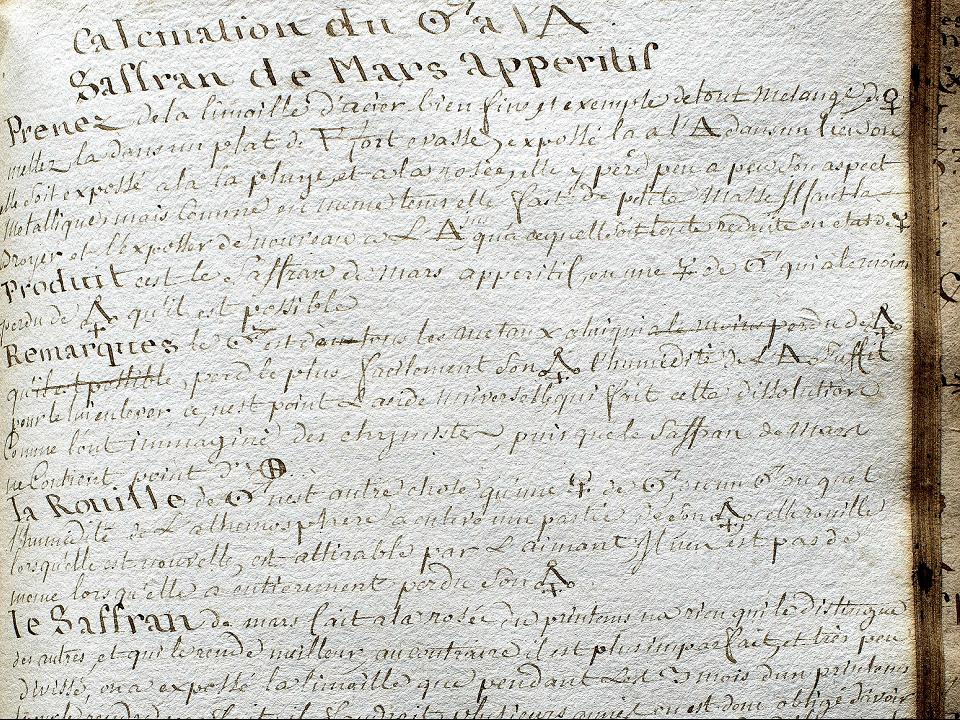 Calcination du ♂ a l'🜁
Saffran de Mars apperitif
Prenez de la limaille d'acier bien fine et exemple de tout melange de ♀
mettez la dans un plat de fort evassé, exposé la a l'🜁 dans un lieu ou
elle soit expossé a la la pluye, et a la rosée, elle y perd peu a peu son aspect
Metallique, mais comme en meme tems elle fait de petite Masse Il faut la
Broyer et l'exposser de nouveau a L'🜁 qu'a ce quelle soit toute reduite en etat de
Produit cest le Saffran de mars apperitif, ou une de ♂ qui a le moins
perdu de qu'il est possible
Remarques le ♂ est de tous les metaux alui qui a le moins perdu de
qu'il est possible, perd le plus facilement son l'humidité de L'🜁 Suffit
pour le lui enlever ce n'est point L'acide universelle qui fait cette dissolution
Comme l'ont immaginé des chymistes, puis que le Saffran de Mars
ne Contient point d'
la Rouille de ♂ n'est autre chose qu'une de ♂, ou un ♂ au quel
l'humidité de L'athemosphere a enlevé une partie de son, cette rouille
lorsqu'elle est nouvelle, est attirable par L'aimant Il n'en est pas de
meme lorsqu'elle a entierement perdu Son
le Saffran de mars fait a la rosée du printems na rien qui le distingue
des autres, et qui le rende meilleur, au contraire il est plus imparfait, et très peu
divissé, on a exposse la limaille que pendant Les 3 mois d'un printems
plusieurs années on est donc obligé d'avoir